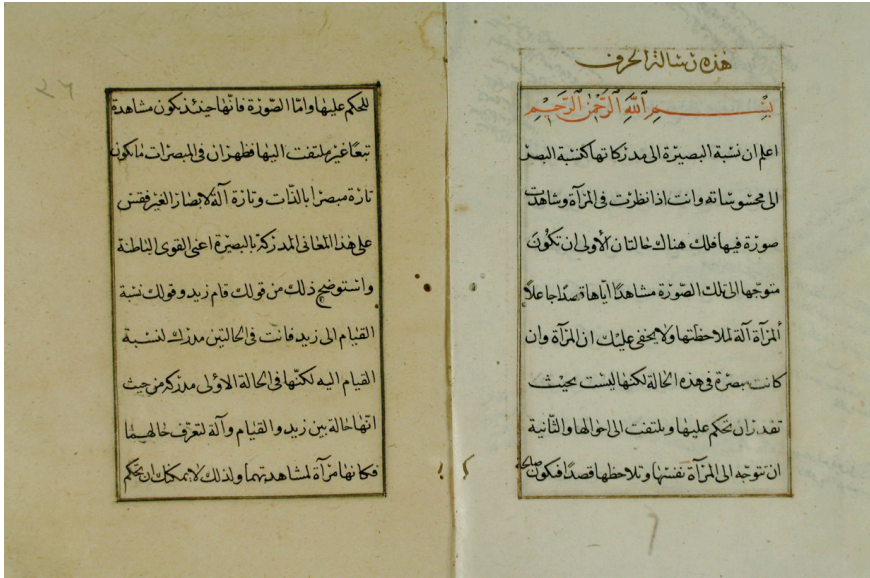 هذه رسالة الحرف
بسم الله الرحمن الرحيم
اعلم ان نسبة البصيرة الى مدركاتها كنسبة البصر
الى محسوساته وانت اذا نظرت فى المرآة وشاهدت
صورة فيها فلك هناك حالتان الأولى ان تكون
متوجها الى تلك الصورة مشاهدًا اياها قصدًا جاعلًا
المرآة آلة لملاحظتها ولا يخفى عليك ان المرآة وإن
كانت مبصرة فى هذه الحالة لكنها ليست بحيث
تقدر ان تحكم عليها وبلتفت الى احوالها والثّانية
ان تتوجه الى المرآة نفسها وتلاحظها قصدًا فيكون صالحة
٢٦
للحكم عليها وامّا الصّورة فانّها حينئذ يكون مشاهدة
تبعًا غير ملتفت اليها فظهر ان فى المبصرات ما يكون
تارة مبصرا بالذّات وتارة آلة لابصار الغير فقس
على هذا المعانى المدركة بالبصيرة اعنى القوى الباطنة
واستوضح ذلك من قولك قام زيد وقولك نسبة
القيام الى زيد فانت فى الحالتين مدرك لنسبة
القيام اليه لكنّها فى الحالة الاولى مدركة من حيث
انّها حالة بين زيد والقيام وآلة لتعرّف حالهما
فكانها مرآة لمشاهدتهما ولذلك لا يمكنك ان تحكم